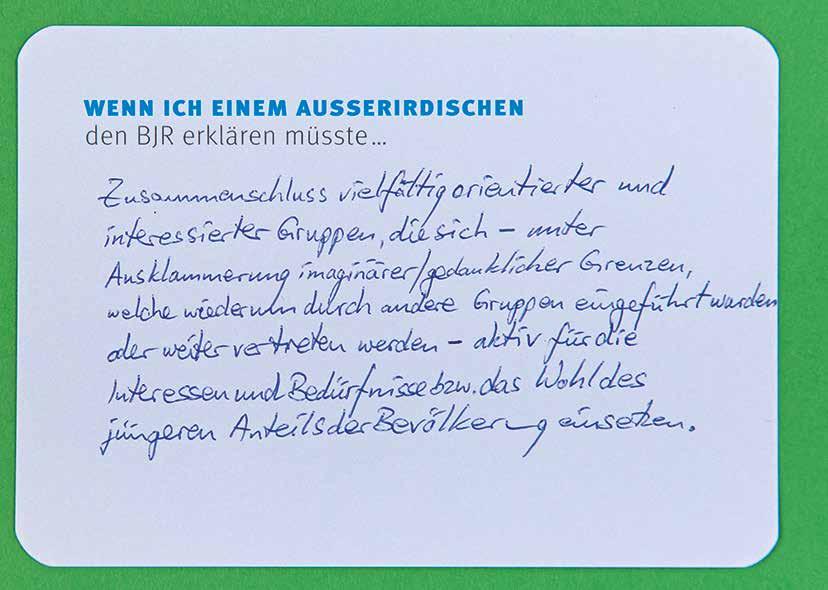 WENN ICH EINEM AUSSERIRDISCHEN
den BJR erklären müsste...
Zusammenschluss vielfältig orientierter und
interessierter Gruppen, die sich – unter
Ausklammerung imaginärer/gedanklicher Grenzen,
welche wiederum durch andere Gruppen eingeführt wurden
oder weiter vertreten werden – aktiv für die
Interessen und Bedürfnisse bzw. das Wohl des
jüngeren Anteils der Bevölkerung einsetzen.